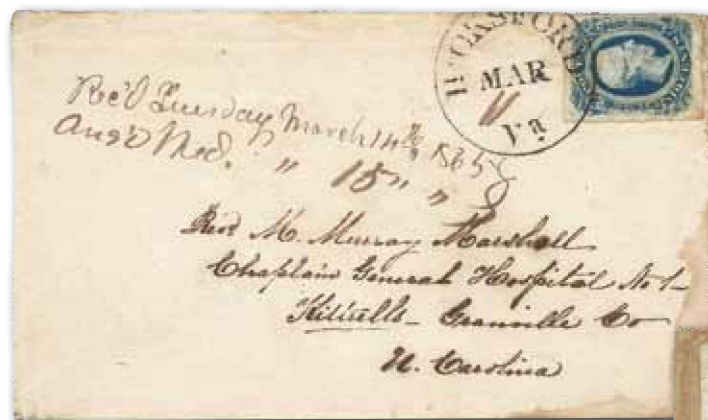 HICKSFORD
MAR
11
Va
Rec'd Tuesday March 14th 1865
Ans'd Wed. " 15 " "
Revd M. Murray Marshall
Chaplain General Hospital No 1-
Kittrells - Granville Co
N. Carolina